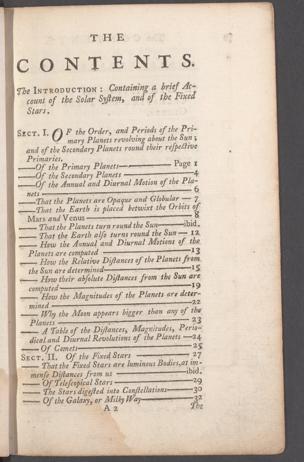 THE
CONTENTS.
The INTRODUCTION: Containing a brief Ac-
count of the Solar Syſtem, and of the Fixed
Stars.
SECT. I. OF the Order, and Periods of the Pri-
mary Planets revolving about the Sun;
and of the Secondary Planets round their reſpective
Primaries.
—Of the Primary Planets— Page 1
—Of the Secondary Planets — 4
—Of the Annual and Diurnal Motion of the Pla-
nets — 6
—That the Planets are Opaque and Globular — 7
—That the Earth is placed betwixt the Orbits of
Mars and Venus — 8
—That the Planets turn round the Sun—ibid.
—That the Earth alſo turns round the Sun — 12
—How the Annual and Diurnal Motions of the
Planets are computed — 13
—How the Relative Diſtances of the Planets from
the Sun are determined—15
—How their abſolute Diſtances from the Sun are
computed—19
—How the Magnitudes of the Planets are deter-
mined—22
—Why the Moon appears bigger than any of the
Planets — 23
—A Table of the Diſtances, Magnitudes, Perio-
dical and Diurnal Revolutions of the Planets —24
—Of Comets— 25
SECT. II. Of the Fixed Stars — 27
—That the Fixed Stars are luminous Bodies, at im-
menſe Diſtances from us —ibid.
—Of Teleſcopical Stars—29
—The Stars digeſted into Conſtellations—30
—Of the Galaxy, or Milky Way—32
A 2 The